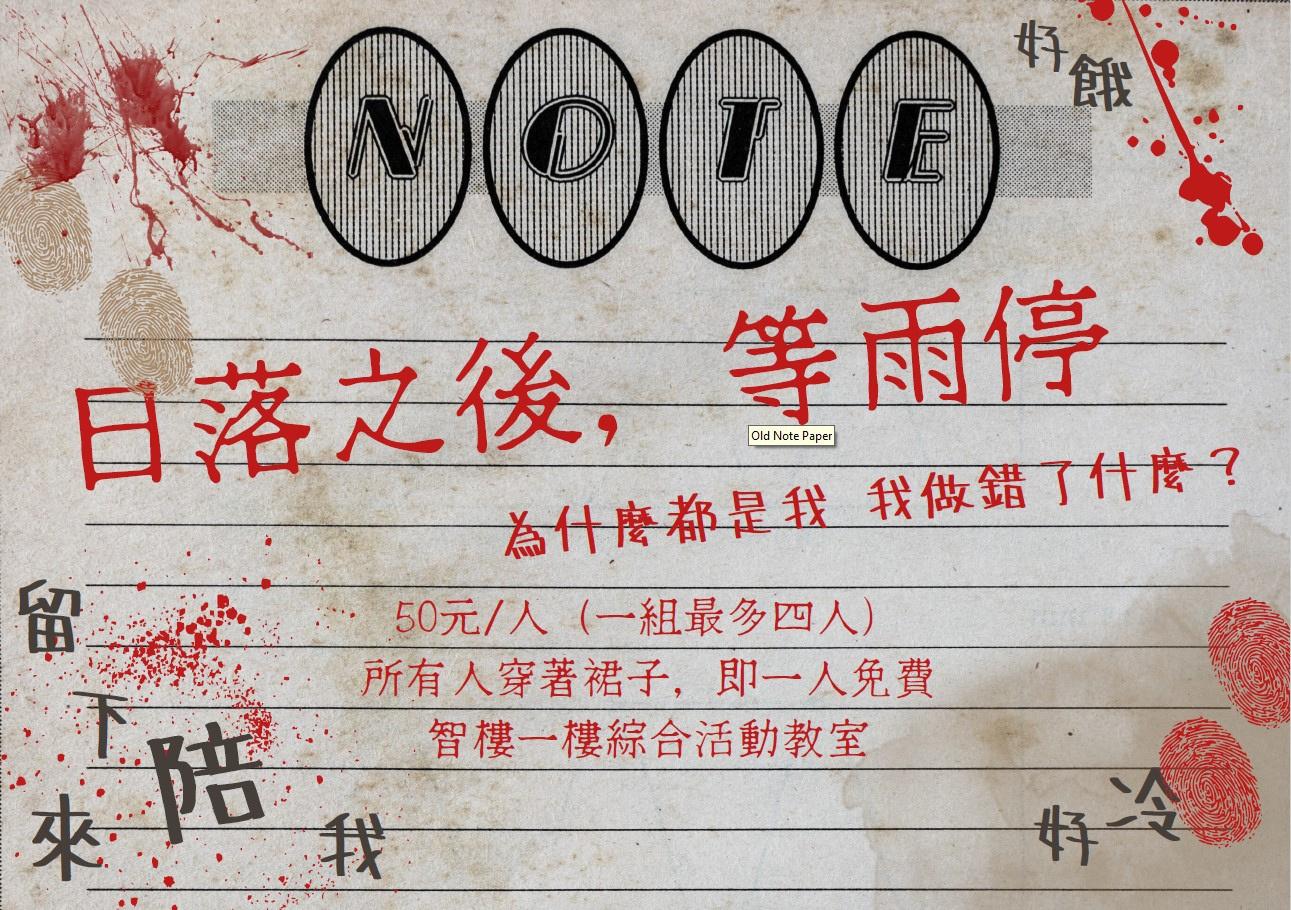 NOTE
好餓
日落之後，等雨停
Old Note Paper
為什麼都是我 我做錯了什麼？
50元/人（一組最多四人）
所有人穿著裙子，即一人免費
智樓一樓綜合活動教室
留下來陪我
好冷